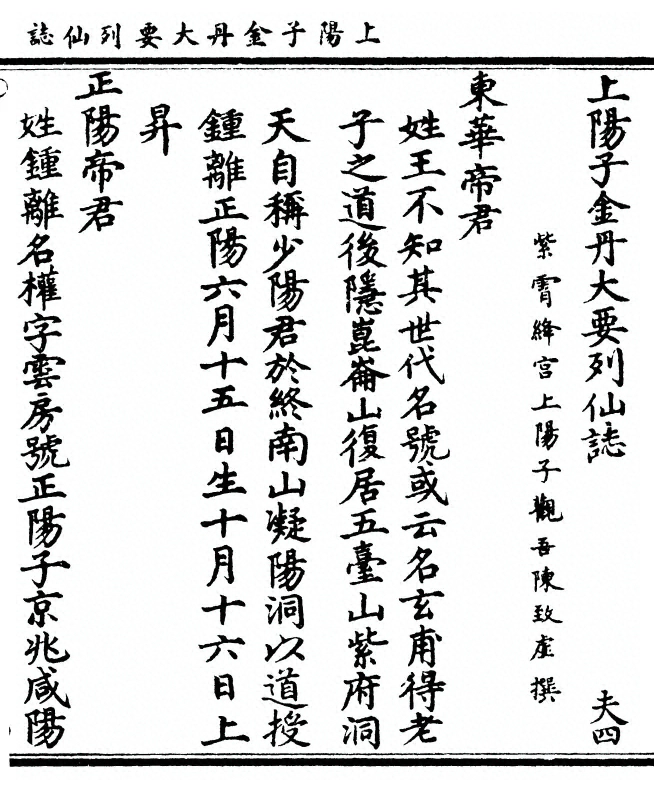 上陽子金丹大要列仙誌
上陽子金丹大要列仙誌 夫四
紫霄絳宮上陽子觀吾陳致虛撰
東華帝君
姓王不知其世代名號或云名玄甫得老
子之道後隱崑崙山復居五臺山紫府洞
天自稱少陽君於終南山凝陽洞以道授
鍾離正陽六月十五日生十月十六日上
昇
正陽帝君
姓鍾離名權字雲房號正陽子京兆咸陽